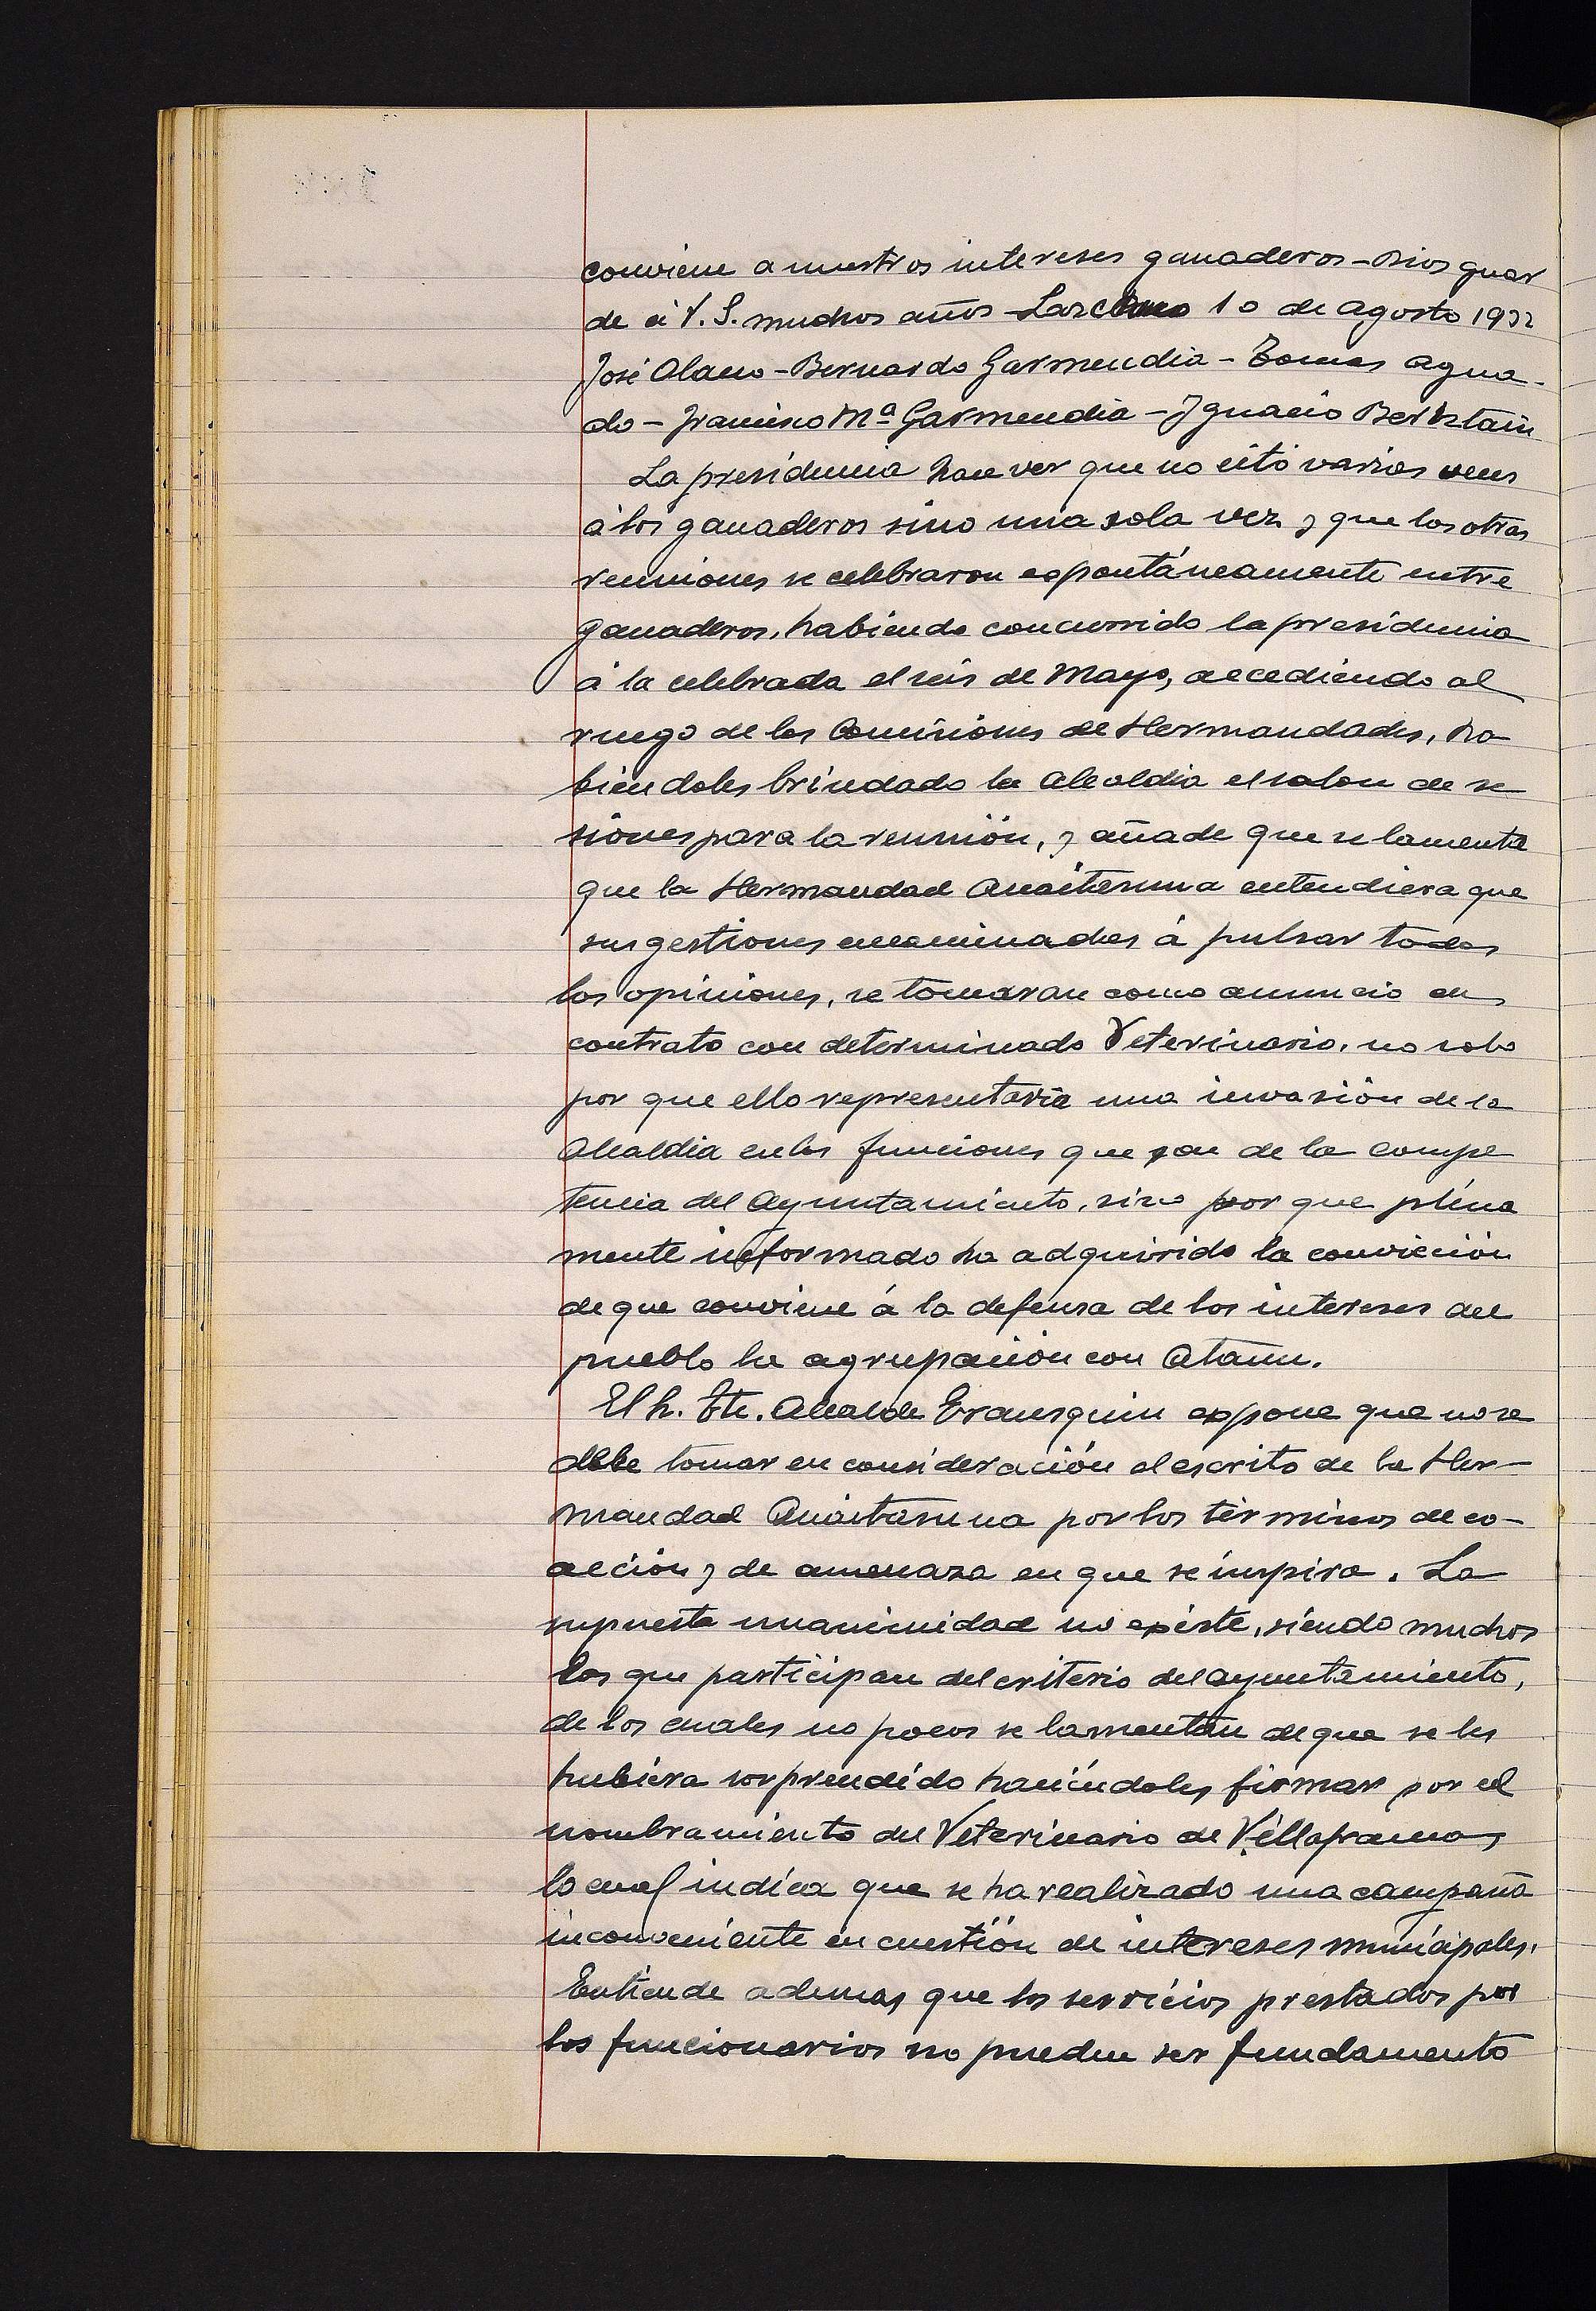 conviene a nuestros intereses ganaderos - Dios guar
de á V. S. muchos años - Lazcano 10 de agosto 1932
José Olano - Bernardo Garmendia - Tomas Agua-
do - Francisco Mª Garmendia - Ignacio Beriztain
La presidencia hace ver que no citó varias veces
á los ganaderos sino una sola vez y que las otras
reuniones se celebraron espontáneamente entre
ganaderos, habiendo concurrido la presidencia
á la celebrada el seis de Mayo, accediendo al
ruego de las Comisiones de Hermandades, ha
biendoles brindado la Alcaldia el salon de se
siones para la reunión, y añade que se lamenta
que la Hermandad Anaitasuna entendiera que
sus gestiones encaminadas á pulsar todas
las opiniones, se tomaran como anuncio de
contrato con determinado Veterinario, no solo
por que ello representaría una invasión de la
Alcaldia en las funciones que son de la compe
tencia del Ayuntamiento, sino por que plena
mente informado ha adquirido la convicción
de que conviene á la defensa de los intereses del
pueblo la agrupación con Ataun.
El h. Tte. Alcalde Erausquin expone que no se
debe tomar en consideración el escrito de la Her-
mandad Anaitasuna por los términos de co-
acción y de amenaza en que se inspira. La
supuesta unanimidad no existe, siendo muchos
los que participan del criterio del ayuntamiento,
de los cuales no pocos se lamentan de que se les
hubiera sorprendido haciéndoles firmar por el
nombramiento del Veterinario de Villafranca,
lo cual indica que se ha realizado una campaña
inconveniente en cuestión de intereses municipales.
Entiende ademas que los servicios prestados por
los funcionarios no pueden ser fundamento